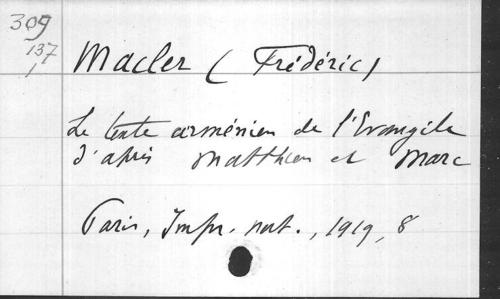 309
137
1
Macler (Frédéric)
Le texte arménien de l'Evangile
d'après Matthieu et Marc
Paris, Impr. nat., 1919, 8